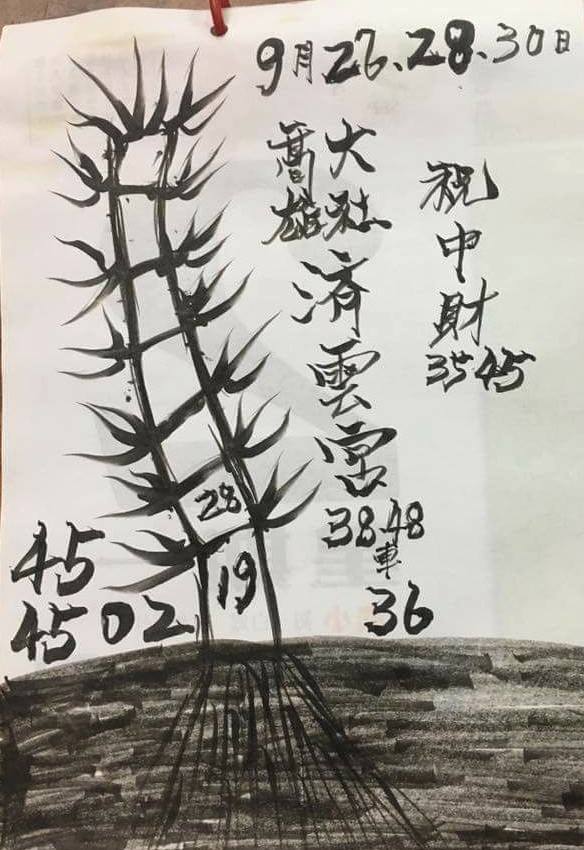 9月26、28、30日
祝中財
35 45
大社
高雄
済雲宮
38 48
車
36
28
19
45
45 02